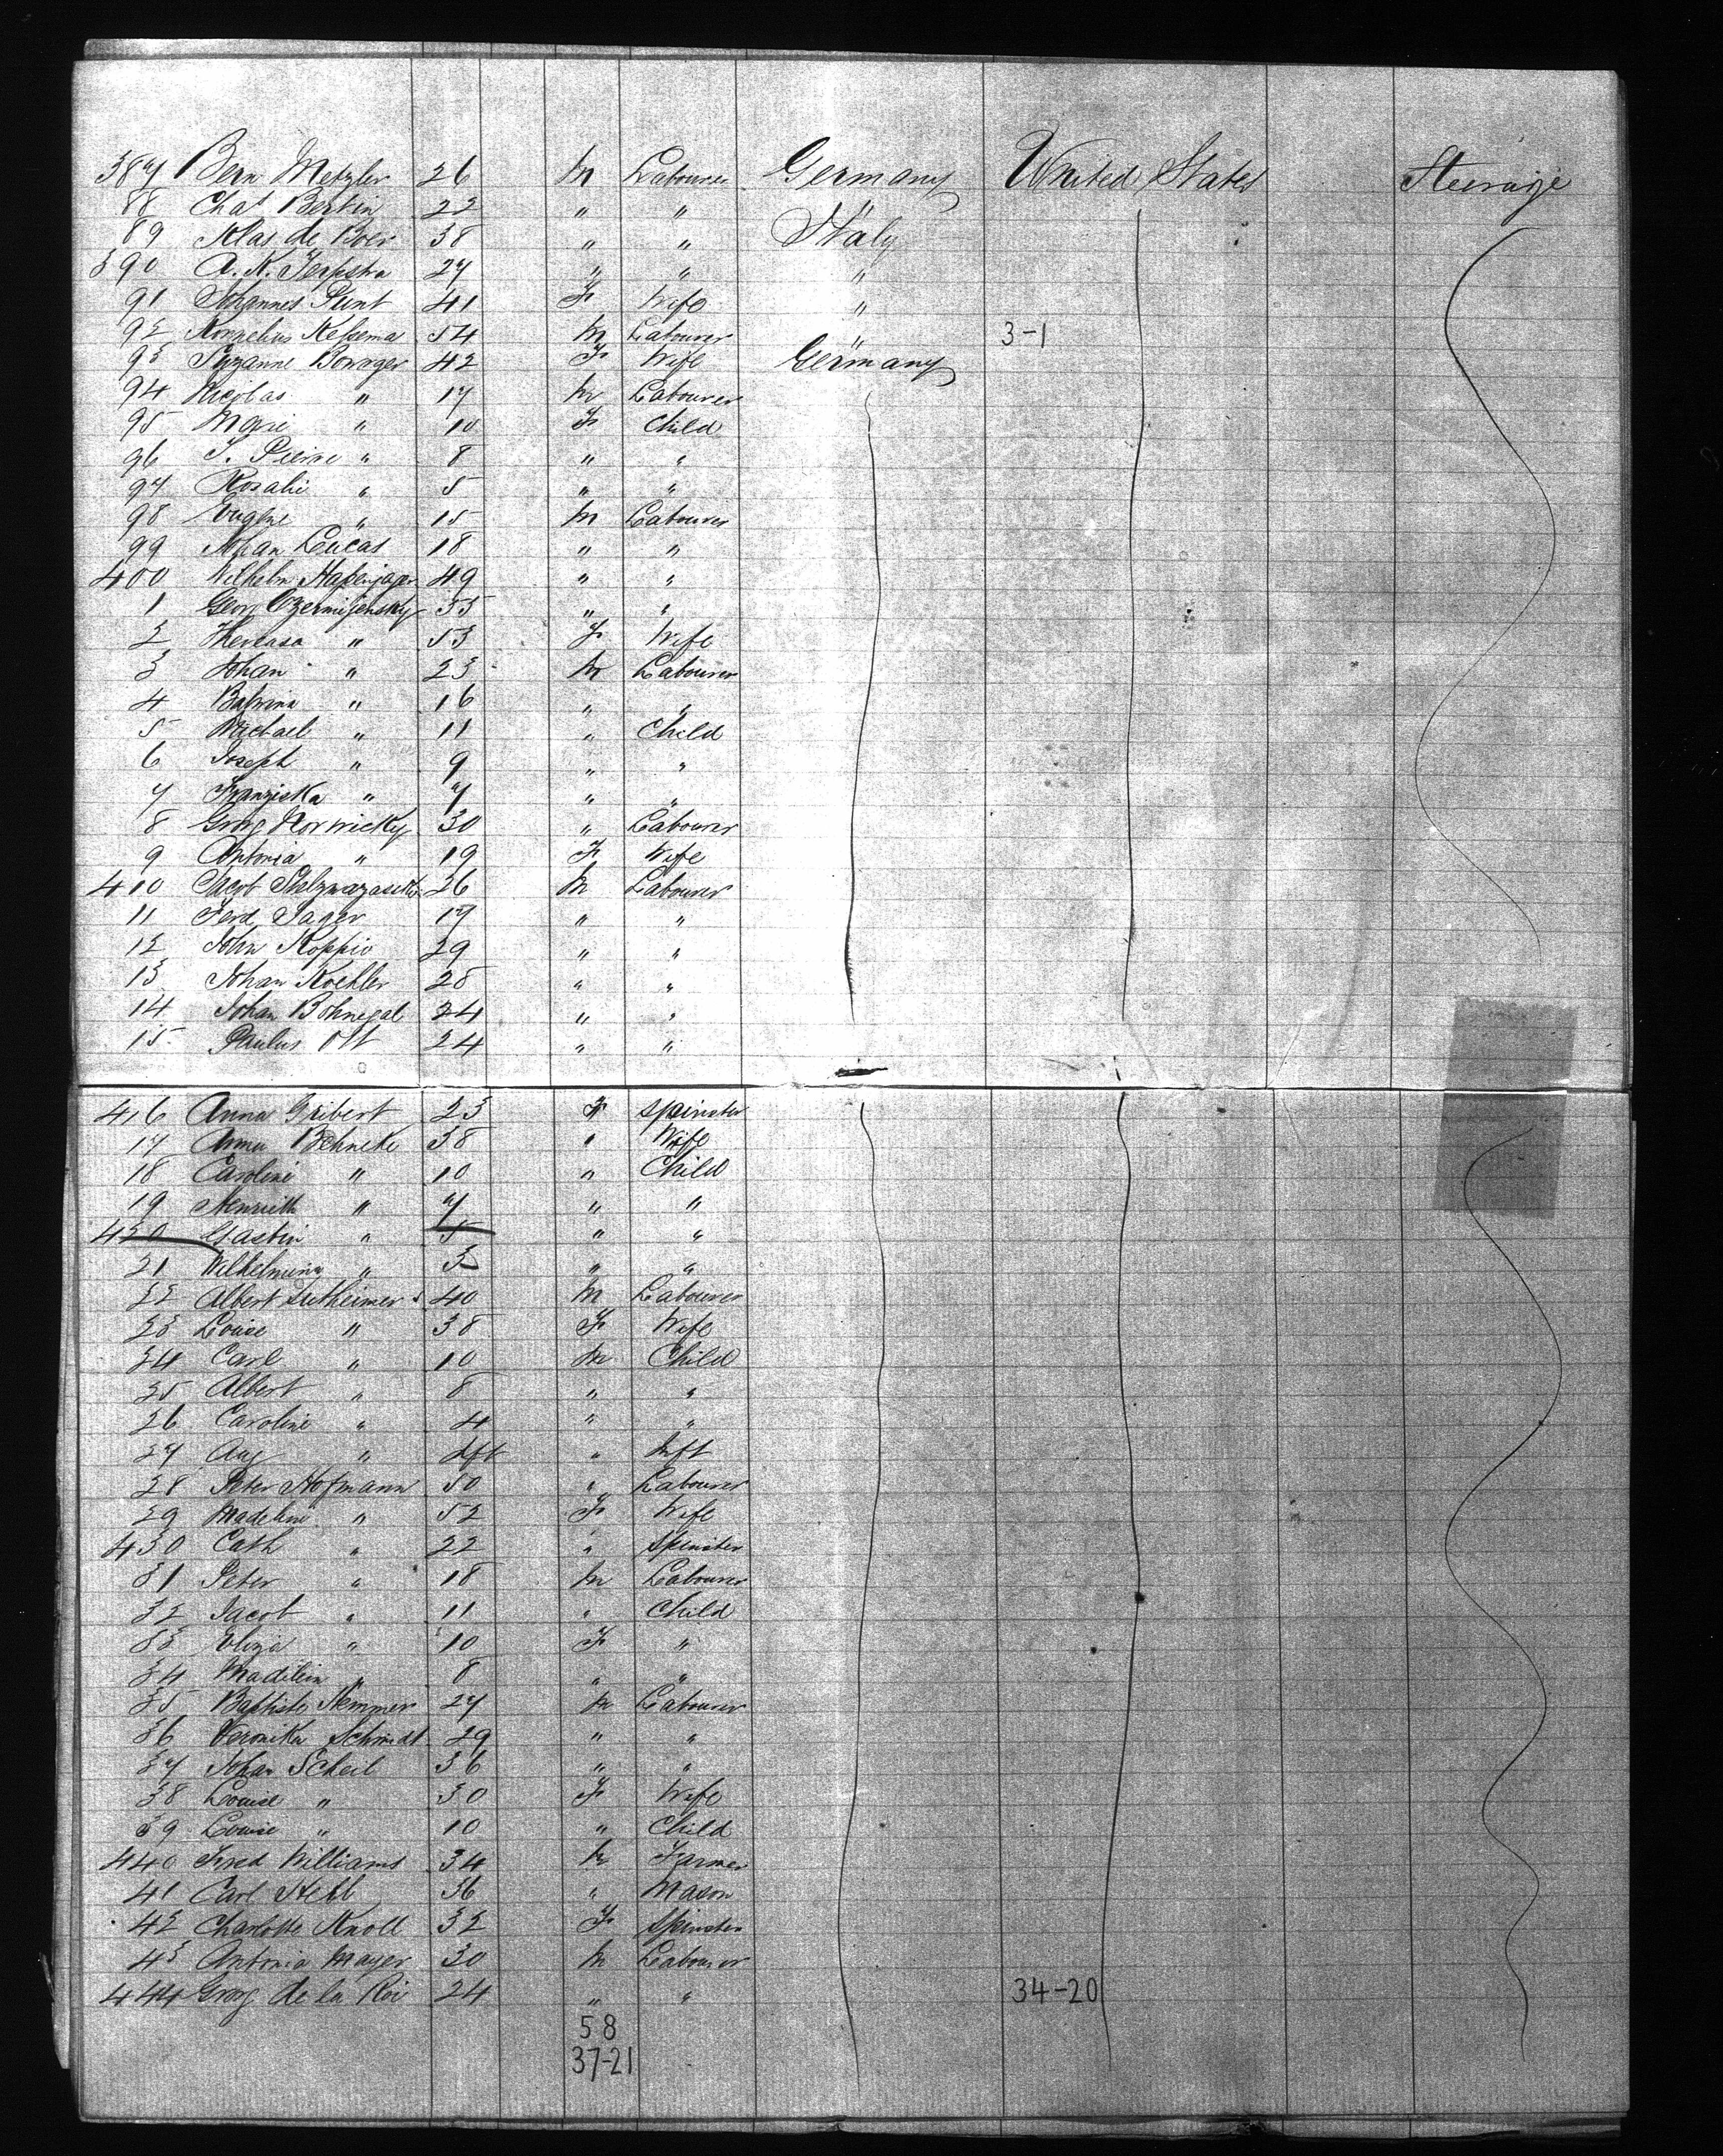 387 Bern Metzler 26 M Labourer Germany United States Steerage
88 Chas Bertin 22 " " "
89 Klas de Boer 38 " " Italy
390 A. K. Terpstra 27 " " "
91 Johannes Punt 41 F Wife "
92 Kornelius Kelsema 54 M Labourer " 3-1
93 Suzanne Bowager 42 F Wife Germany
94 Nicolas " 17 M Labourer
95 Marie " 10 F Child
96 J. Pierre " 8 " "
97 Rosalie " 5 " "
98 Eugene " 15 M Labourer
99 Johan Lucas 18 " "
400 Wilhelm Hasenjager 49 " "
1 Georg 55 " "
2 Theresa " 53 F Wife
3 Johan " 23 M Labourer
4 " 16 " "
5 Michael " 11 " Child
6 Joseph " 9 " "
7 Franziska " 7 " "
8 Georg Norwicky 30 " Labourer
9 Antonia " 19 F Wife
410 Jacob 26 M Labourer
11 Ferd Jager 17 " "
12 John Koppio 29 " "
13 Johan Koehler 28 " "
14 Johan Bohnegal 24 " "
15 Paulus Ott 24 " "
416 Anna Gribert 23 F Spinster
17 Anna Behncke 38 " Wife
18 Caroline " 10 " Child
19 Henrieth " 7 " "
420 Gastin " 5 " "
21 Wilhelmina " 3 " "
22 Albert Sutheimer 40 M Labourer
23 Louise " 38 F Wife
24 Carl " 10 M Child
25 Albert " 8 " "
26 Caroline " 4 " "
27 Aug " Ift " Inft
28 Peter Hofmann 50 " Labourer
29 Madeline " 52 F Wife
430 Cath " 22 " Spinster
31 Peter " 18 M Labourer
32 Jacob " 11 " Child
33 Eliza " 10 F "
34 Madilein " 8 " "
35 Baptiste Nemmer 27 M Labourer
36 Veronika Schmidt 29 " "
37 Johan Scheil 36 " "
38 Louise " 30 F Wife
39 Louise " 10 " Child
440 Fred Williams 34 M Farmer
41 Carl Hebl 36 " Mason
42 Charlotte Knoll 32 F Spinster
43 Antonia Mayer 30 M Labourer
444 Georg de la Roi 24 " " 34-20
58
37-21